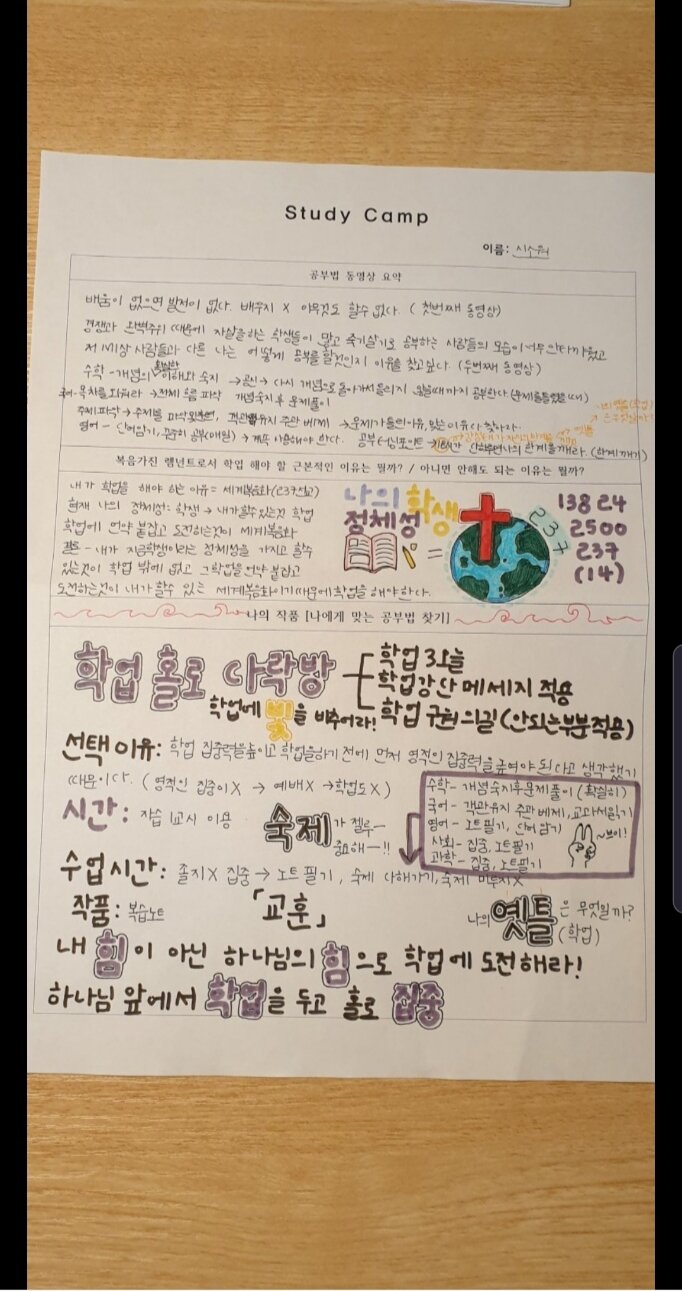 Study Camp
이름:
공부법 동영상 요약
배움이 없으면 발전이 없다. 배우지 X 아무것도 할수 없다. (첫번째 동영상)
경쟁과 완벽주의 때문에 자살을하는 학생들이 많고 죽기살기로 공부하는 사람들의 모습이 너무 안타까웠고
저 세상 사람들과 다른 나는 어떻게 공부를 할것인지 이유를 찾고싶다. (두번째 동영상)
수학 - 개념의 확실한 이해와 숙지 → → 다시 개념으로 돌아가서 틀리지 않을때까지 공부한다. (문제를틀렸을때)
국어 - 목차를 외워라 → 전체 흐름 파악 개념숙지 후 문제풀이
주제 파악 → 주제를 파악 객관유지 주관 배제 → 문제가 틀린이유, 맞는이유 다 찾아라.
영어 - 단어암기, 꾸준히 공부(매일) → 계속 사용해야 한다. 공부 나의 한계를깨라. (한계깨기)
복음가진 렘넌트로서 학업 해야 할 근본적인 이유는 뭘까? / 아니면 안해도 되는 이유는 뭘까?
내가 학업을 해야 하는 이유 = 세계복음화 (237선교)
현재 나의 정체성: 학생 → 내가할수있는것 학업
학업에 언약 붙잡고 도전하는것이 세계복음화
결론 - 내가 지금학생이라는 정체성을 가지고 할수
있는것이 학업 밖에 없고 그학업을 언약 붙잡고
도전하는것이 내가할수 있는 세계복음화이기때문에 학업을 해야한다.
나의 학생
정체성
=
237
138 24
2500
237
(14)
나의 작품 [나에게 맞는 공부법 찾기]
학업 홀로 다락방
학업 3오늘
학업강단 메세지 적용
학업 구원의길 (안되는부분적용)
학업에 빛을 비추어라!
선택이유: 학업 집중력을높이고 학업을하기 전에 먼저 영적인 집중력을 높여야 된다고 생각했기
때문이다. (영적인 집중이X → 예배X → 학업도X)
시간: 자습 1교시 이용
숙제가 젤루~
중요해~!!
수학 - 개념숙지후문제풀이 (확실히)
국어 - 객관유지 주관 배제, 교과서읽기
영어 - 노트필기, 단어암기
사회 - 집중, 노트필기
과학 - 집중, 노트필기
~브이!
수업시간: 졸지X 집중 → 노트필기, 숙제 다해가기, 숙제 미루지X
작품: 복습노트
「교훈」
나의 옛틀은 무엇일까?
(학업)
내 힘이 아닌 하나님의 힘으로 학업에 도전해라!
하나님 앞에서 학업을 두고 홀로 집중